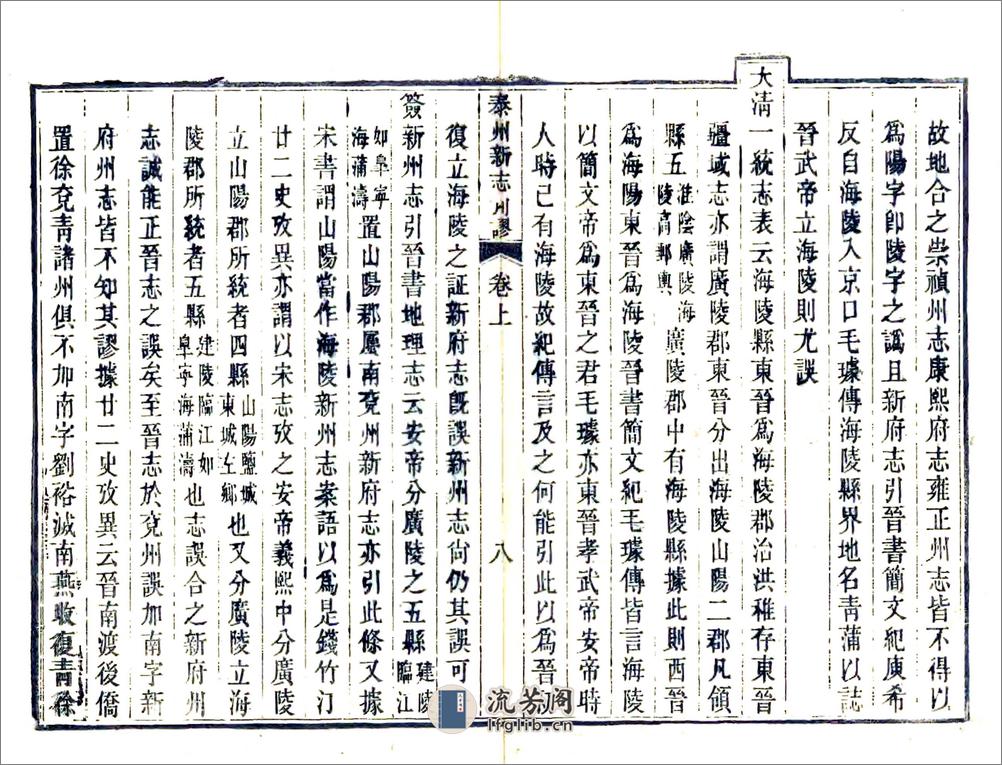 故地合之崇禎州志康熙府志雍正州志皆不得以
爲陽字卽陵字之譌且新府志引晉書簡文紀庾希
反自海陵入京口毛璩傳海陵縣界地名青蒲以誌
晉武帝立海陵則尤誤
大清一統志表云海陵縣東晉爲海陵郡治洪稚存東晉
疆域志亦謂廣陵郡東晉分出海陵山陽二郡凡領
縣五淮陰廣陵海陵高郵輿廣陵郡中有海陵縣據此則西晉
爲海陽東晉爲海陵晉書簡文紀毛璩傳皆言海陵
以簡文帝爲東晉之君毛璩亦東晉孝武帝安帝時
人時已有海陵故紀傳言及之何能引此以爲晉
泰州新志刊謬 卷上 八
復立海陵之証新府志旣誤新州志尙仍其誤可
簽新州志引晉書地理志云安帝分廣陵之五縣建陵臨江
如臯寧海蒲濤置山陽郡屬南兗州新府志亦引此條又據
宋書謂山陽當作海陵新州志案語以爲是錢竹汀
廿二史攷異亦謂以宋志攷之安帝義熙中分廣陵
立山陽郡所統者四縣山陽鹽城東城左鄉也又分廣陵立海
陵郡所統者五縣建陵臨江如臯寧海蒲濤也志誤合之新府州
志誠能正晉志之誤矣至晉志於兗州誤加南字新
府州志皆不知其謬據廿二史攷異云晉南渡後僑
置徐兗靑諸州俱不加南字劉裕滅南燕收復靑徐
流芳阁
lfglib.cn